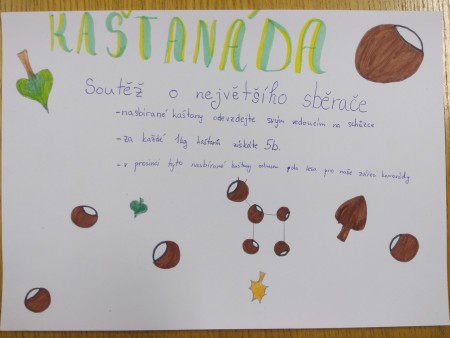 KAŠTANÁDA
Soutěž o největšího sběrače
-nasbírané kaštany odevzdejte svým vedoucím na schůzce
-za každé 1kg kaštanů získáte 5b.
-v prosinci tyto nasbírané kaštany do lesa pro naše zvířecí kamarády